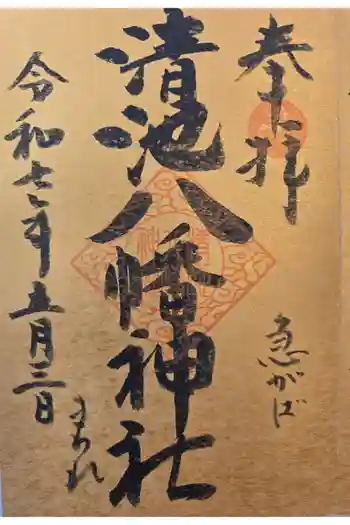 奉拝
急がば
清池八幡神社
まわれ
令和七年五月三日